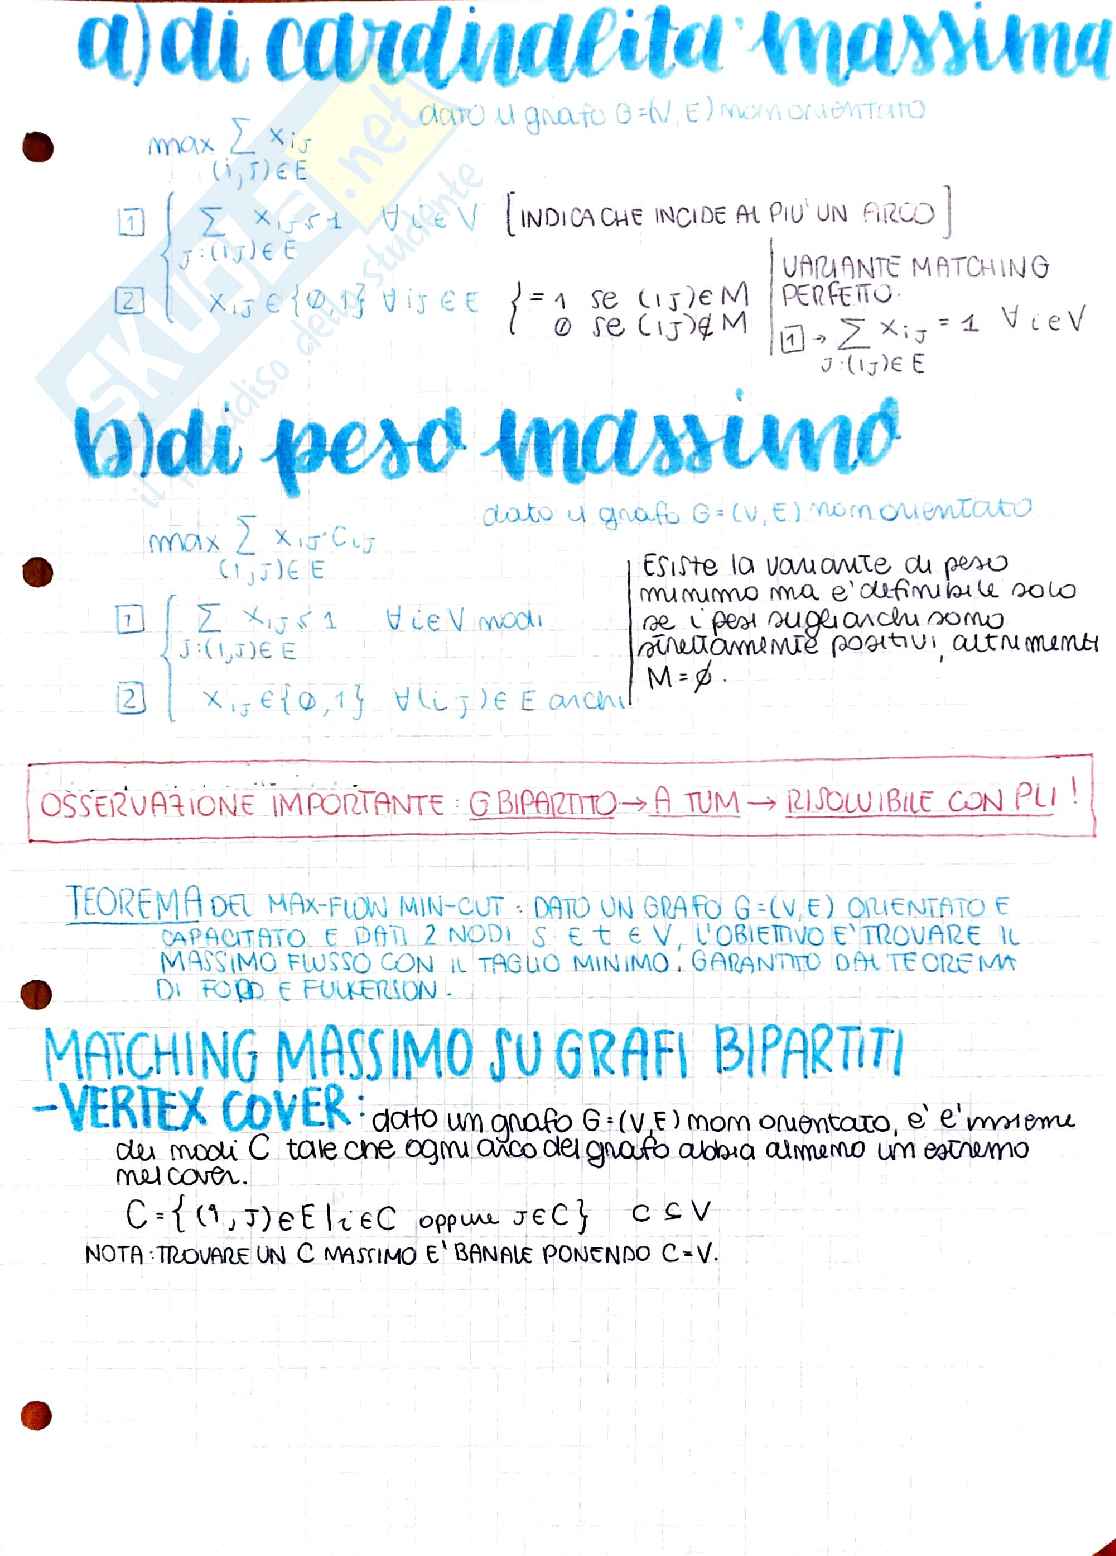 a) di cardinalità massima
dato il grafo G=(V, E) non orientato
max ∑ xij
(i,J)∈E
1 ∑ xij ≤ 1 ∀ i∈V [INDICA CHE INCIDE AL PIU' UN ARCO]
J:(iJ)∈E
2 xij ∈ {0,1} ∀ iJ ∈ E { = 1 se (iJ)∈M
0 se (iJ)∉M
VARIANTE MATCHING
PERFETTO.
1 → ∑ xiJ = 1 ∀ i∈V
J:(iJ)∈E
b) di peso massimo
dato il grafo G=(V, E) non orientato
max ∑ xiJ ciJ
(i,J)∈E
1 ∑ xiJ ≤ 1 ∀ i∈V nodi
J:(i,J)∈E
2 xiJ ∈ {0,1} ∀(iJ)∈ E archi
Esiste la variante di peso
minimo ma e' definibile solo
se i pesi sugli archi sono
strettamente positivi, altrimenti
M=∅.
OSSERVAZIONE IMPORTANTE: G BIPARTITO → A TUM → RISOLVIBILE CON PLI!
TEOREMA DEL MAX-FLOW MIN-CUT: DATO UN GRAFO G=(V,E) ORIENTATO E
CAPACITATO E DATI 2 NODI S E t ∈ V, L'OBIETTIVO E' TROVARE IL
MASSIMO FLUSSO CON IL TAGLIO MINIMO. GARANTITO DAL TEOREMA
DI FORD E FULKERSON.
MATCHING MASSIMO SU GRAFI BIPARTITI
-VERTEX COVER: dato un grafo G=(V,E) non orientato, e' e' insieme
dei nodi C tale che ogni arco del grafo abbia almeno un estremo
nel cover.
C={(i,J)∈E | i∈C oppure J∈C} C ⊆ V
NOTA: TROVARE UN C MASSIMO E' BANALE PONENDO C=V.
SKUOLA.net
il paradiso dello studente